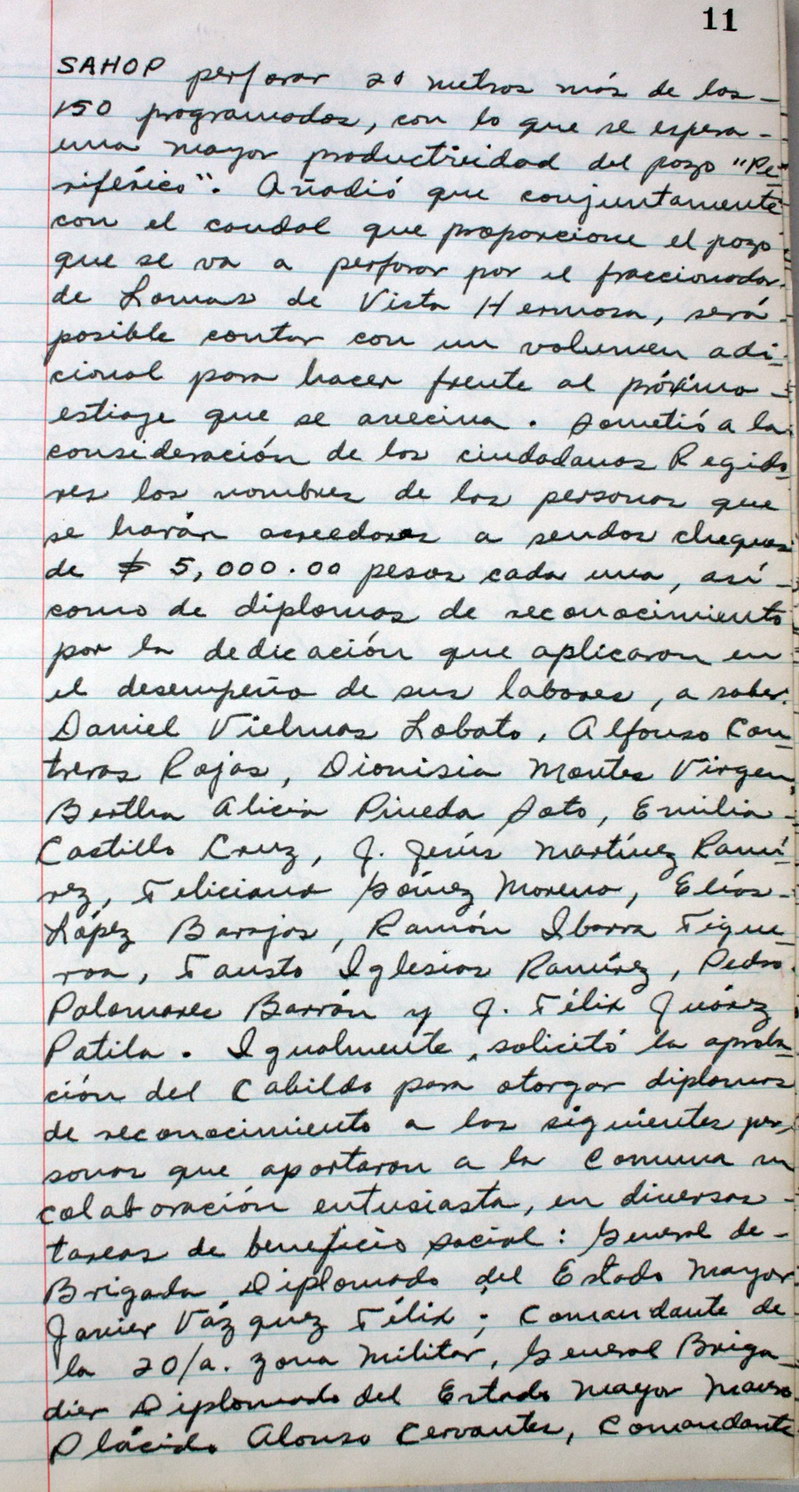 11
SAHOP perforar 20 metros más de los -
150 programados, con lo que se espera -
una mayor productividad del pozo "Pe-
riférico". Añadió que conjuntamente
con el caudal que proporcione el pozo
que se va a perforar por el fraccionador
de Lomas de Vista Hermosa, será -
posible contar con un volumen adi-
cional para hacer frente al próximo -
estiaje que se avecina. Sometió a la
consideración de los ciudadanos Regido-
res los nombres de las personas que
se harán acreedoras a sendos cheques
de $ 5,000.00 pesos cada una, así -
como de diplomas de reconocimiento
por la dedicación que aplicaron en
el desempeño de sus labores, a saber:
Daniel Vielmas Lobato, Alfonso Con-
treras Rojas, Dionisia Montes Virgen,
Bertha Alicia Pineda Soto, Emilia -
Castillo Cruz, J. Jesús Martínez Ramí-
rez, Feliciana Gómez Moreno, Elías -
López Barajas, Ramón Ibarra Figue-
roa, Fausto Iglesias Ramírez, Pedro
Palomares Barrón y J. Félix Juárez
Patila. Igualmente, solicitó la aproba-
ción del Cabildo para otorgar diplomas
de reconocimiento a las siguientes per-
sonas que aportaron a la Comuna su
colaboración entusiasta, en diversas -
tareas de beneficio social: General de -
Brigada Diplomado del Estado Mayor
Javier Vázquez Félix; Comandante de
la 20/a. zona Militar, General Briga-
dier Diplomado del Estado Mayor Mauro
Plácido Alonso Cervantes, Comandante